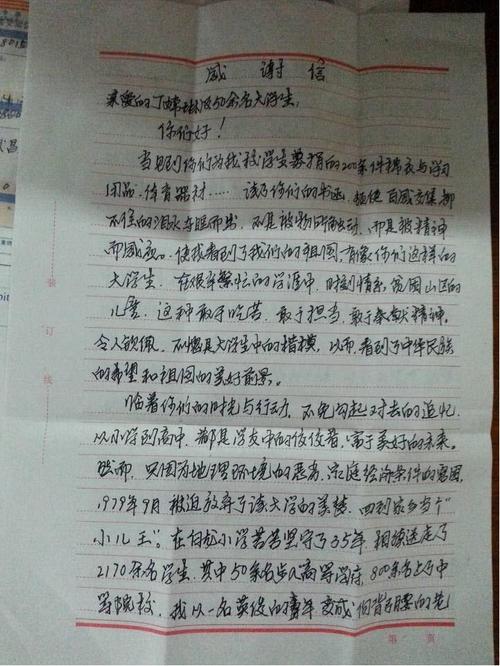 感谢信
亲爱的丁 及50余名大学生，
你们好！
当见到你们为我校学生募捐的200余件棉衣与学习
用品、体育器材……读了你们的书函，我便百感交集，都
不住的泪水夺眶而出，不是被物所感动，而是被精神
而感染。使我看到了我们的祖国，有像你们这样的
大学生，在很紧繁忙的学涯中，时刻情系贫困山区的
儿童，这种敢于吃苦、敢于担当、敢于奉献精神，
令人钦佩，不愧是大学生中的楷模，从而看到了中华民族
的希望和祖国的美好前景。
临着你们的时光与行动，不免勾起对过去的追忆，
从小学到高中，都是学友中的佼佼者，富于美好的未来。
然而，只因为地理环境的恶劣，家庭经济条件的窘困，
1979年9月被迫放弃了读大学的美梦，回到家乡当个"
小儿王"。在白松小学苦苦坚守了35年，相续送走了
2170余名学生，其中50余名步入高等学府，800余名上了中
等院校，我从一名英俊的青年变成个背弓腰的老
装
订
线
第 页